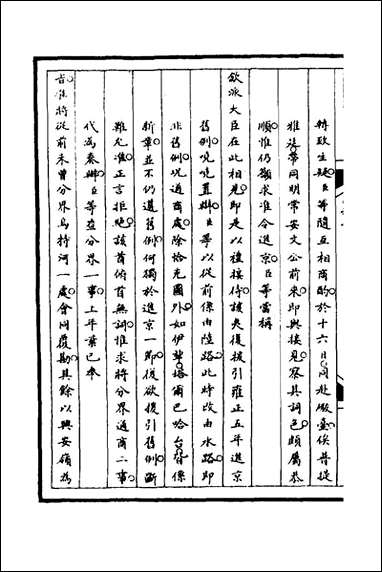 轉致生疑臣等隨互相商酌於十六日同赴廠臺俟普提
雅廷帶同明常安文公前來即與接見察其詞色頗屬恭
順惟仍顓求准令進京臣等當稱
欽派大臣在此相見即是以禮接待該夷復援引雍正五年進京
舊例哓哓置辯臣等以從前係由陸路此時改由水路即
非舊例况通商處除恰克圖外如伊犂塔爾巴哈台皆係
新章並不仍遵舊例何獨於進京一節復欲援引舊例斷
難允准正言拒絕該酋俯首無詞惟求將分界通商二事
代為奏辦臣等查分界一事上年業已奉
旨准將從前未曾分界烏特河一處會同履勘其餘以興安嶺為